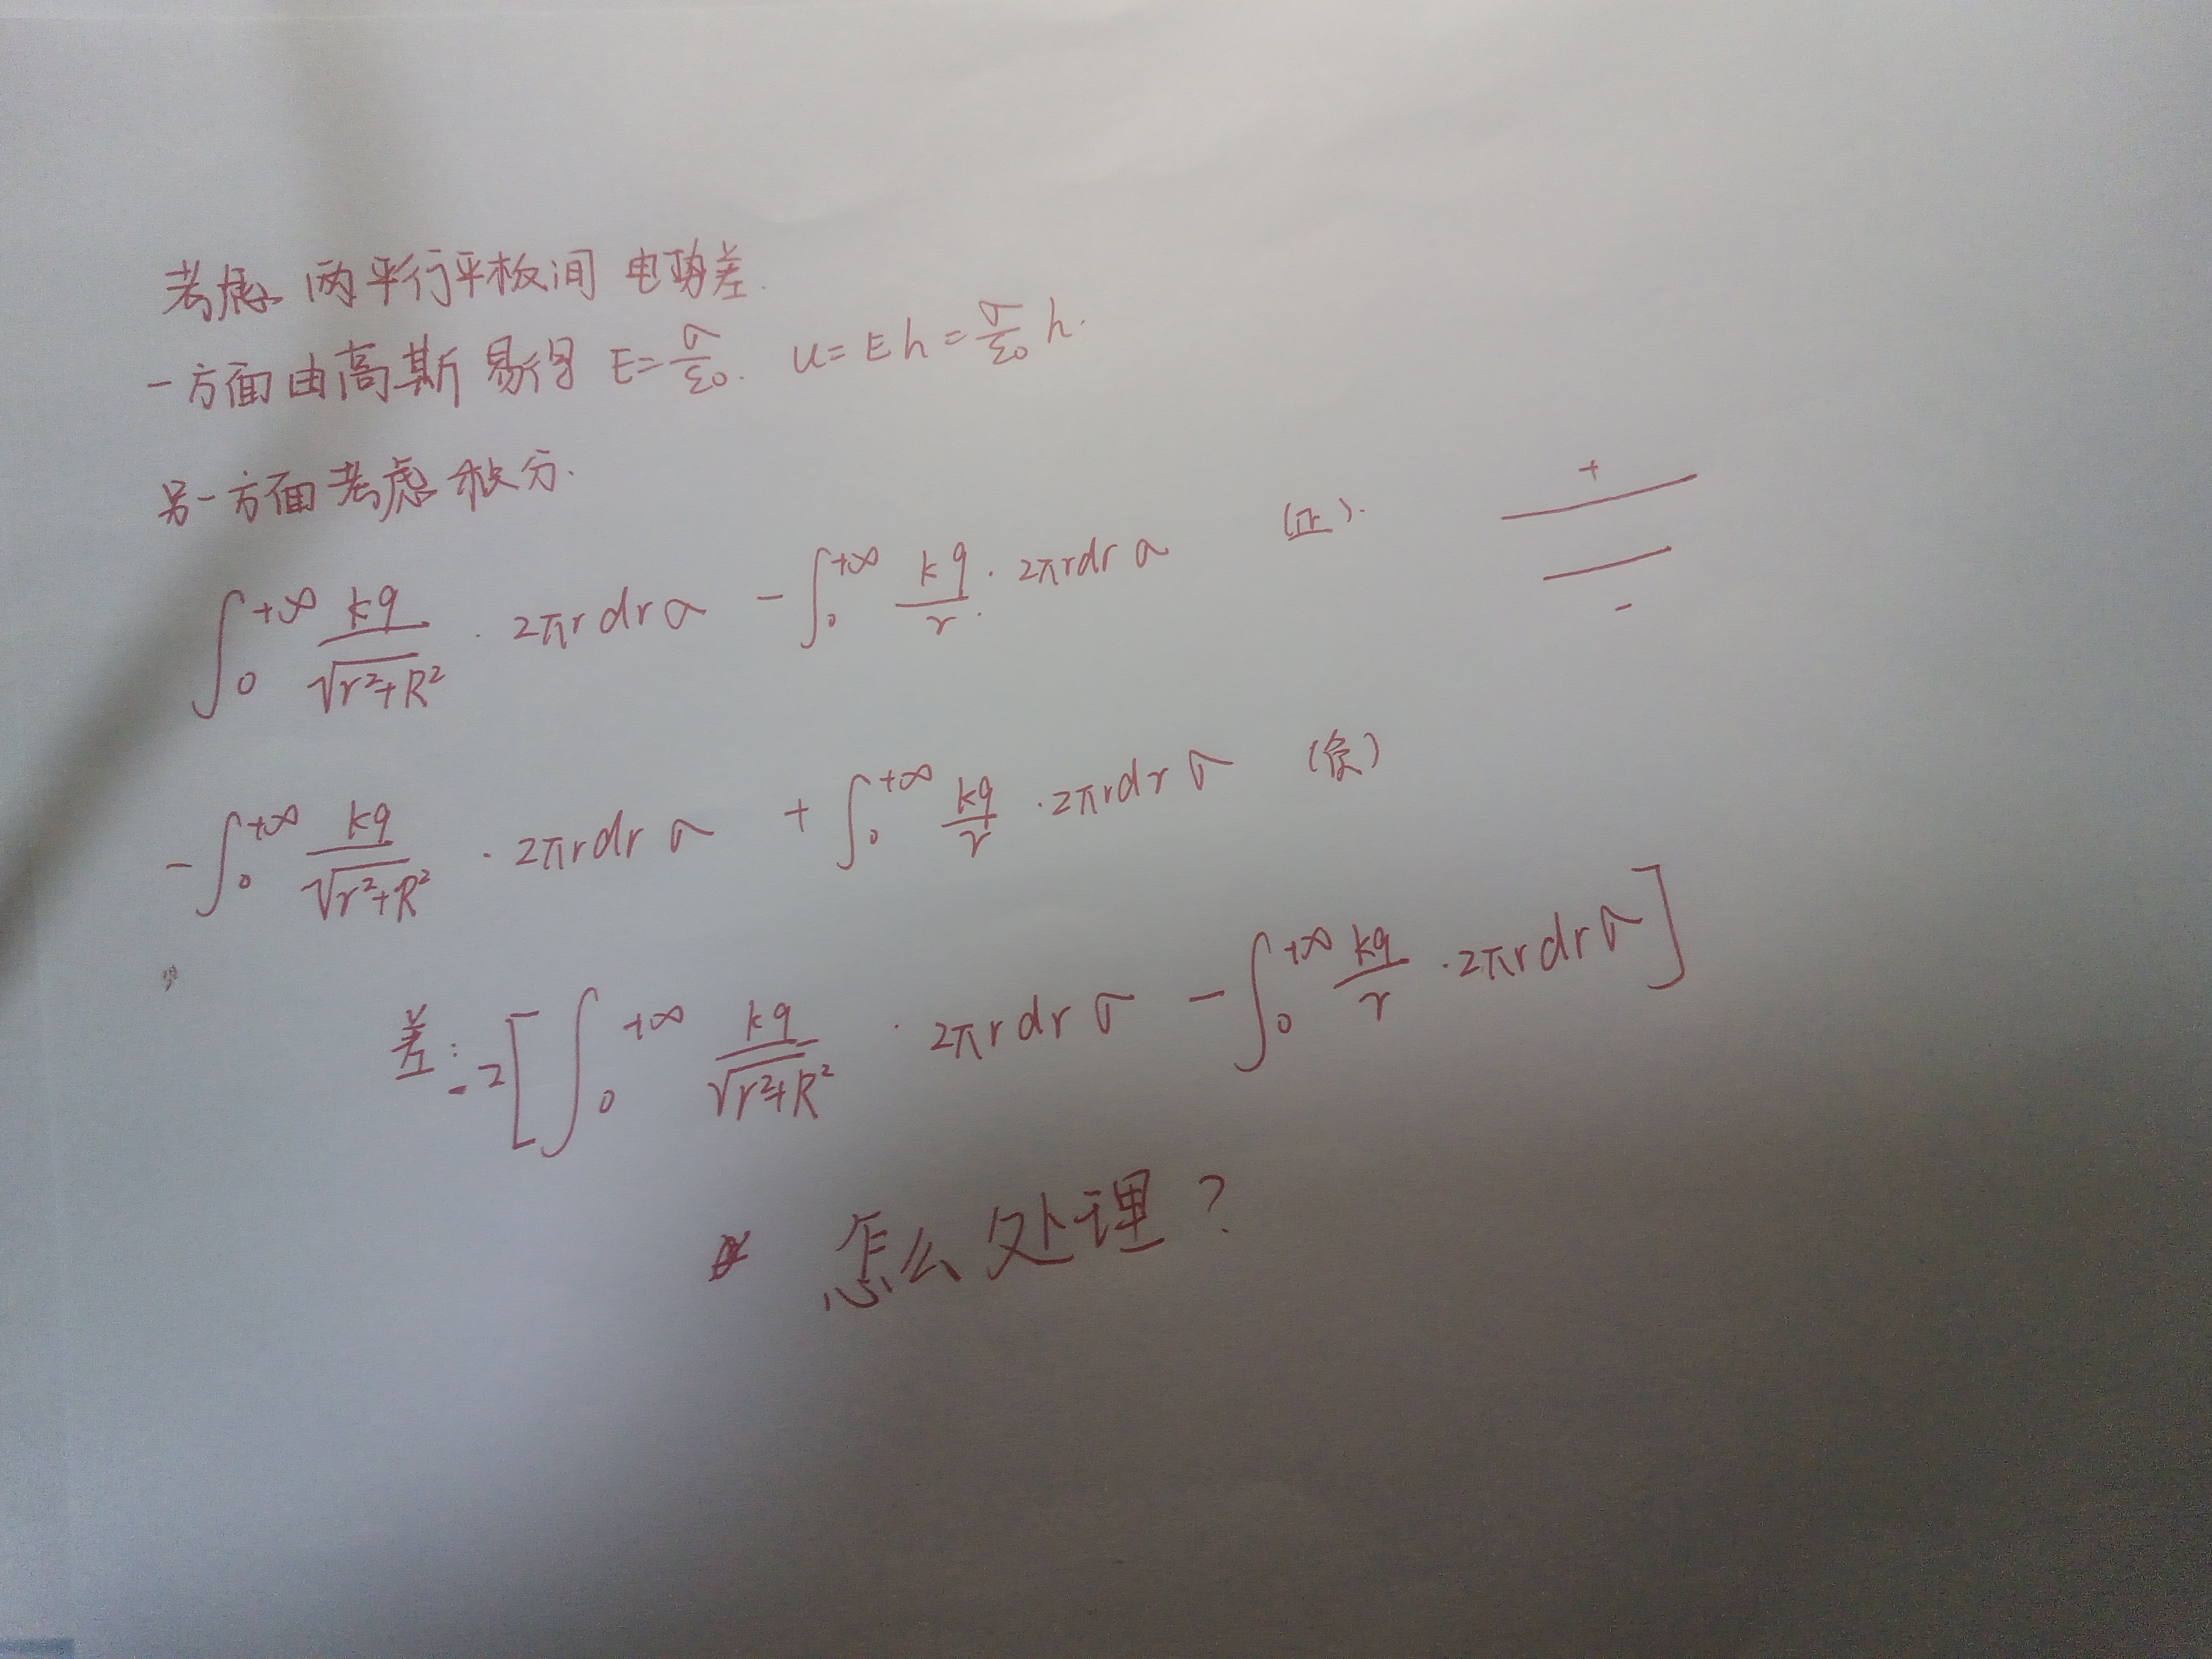 考虑两平行平板间电势差.
一方面由高斯易得 E=σ/ε₀. u=Eh=σ/ε₀ h.
另一方面考虑积分.
∫₀^{+∞} kq/√(r²+R²) · 2πrdrσ - ∫₀^{+∞} kq/r · 2πrdrσ (正).
+
-
-∫₀^{+∞} kq/√(r²+R²) · 2πrdrσ + ∫₀^{+∞} kq/r · 2πrdrσ (负)
差: -2[∫₀^{+∞} kq/√(r²+R²) · 2πrdrσ - ∫₀^{+∞} kq/r · 2πrdrσ]
怎么处理?